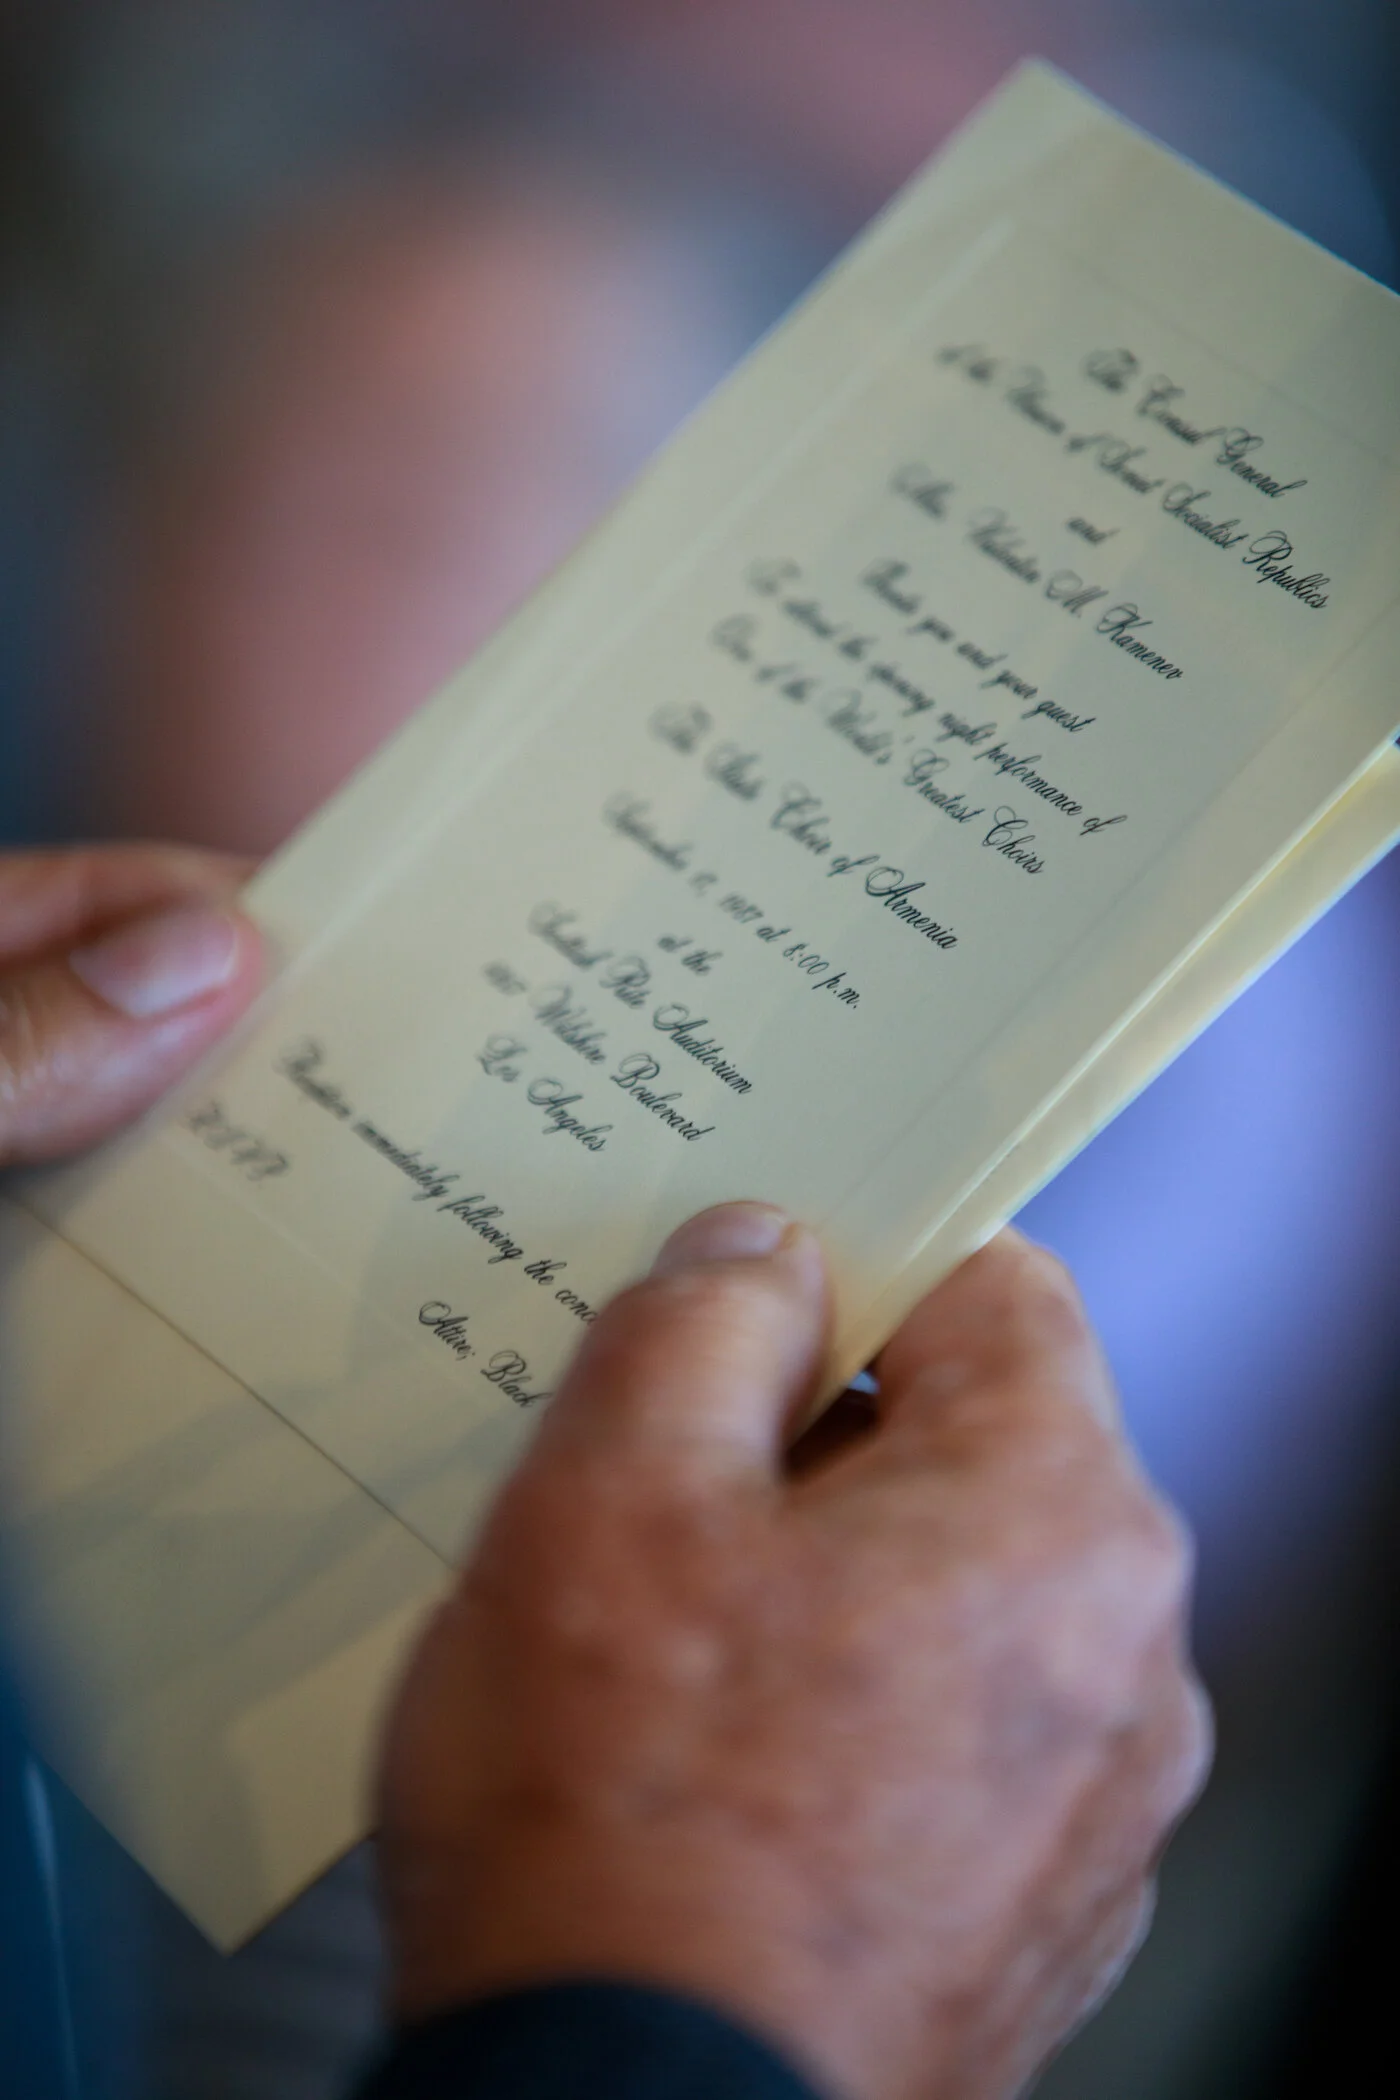 The Consul General
of the Union of Soviet Socialist Republics
and
Mrs. M. Kamenev
Invite you and your guest
To attend the opening night performance of
One of the World's Greatest Choirs
The State Choir of Armenia
September 17, 1987 at 8:00 p.m.
at the
Scottish Rite Auditorium
Wilshire Boulevard
Los Angeles
Reception immediately following the conc
R.S.V.P.
Attire; Black